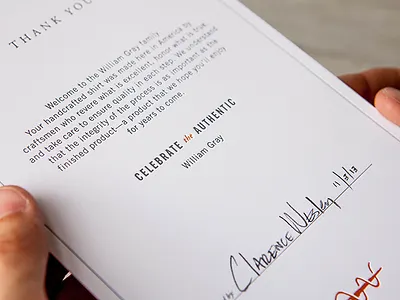 THANK YOU
Welcome to the William Gray family
Your handcrafted shirt was made here in America by
craftsmen who revere what is excellent, honor what is true,
and take care to ensure quality in each step. We understand
that the integrity of the process is as important as the
finished product—a product that we hope you'll enjoy
for years to come.
CELEBRATE the AUTHENTIC
William Gray
CLARENCE Wesley 11/3/13